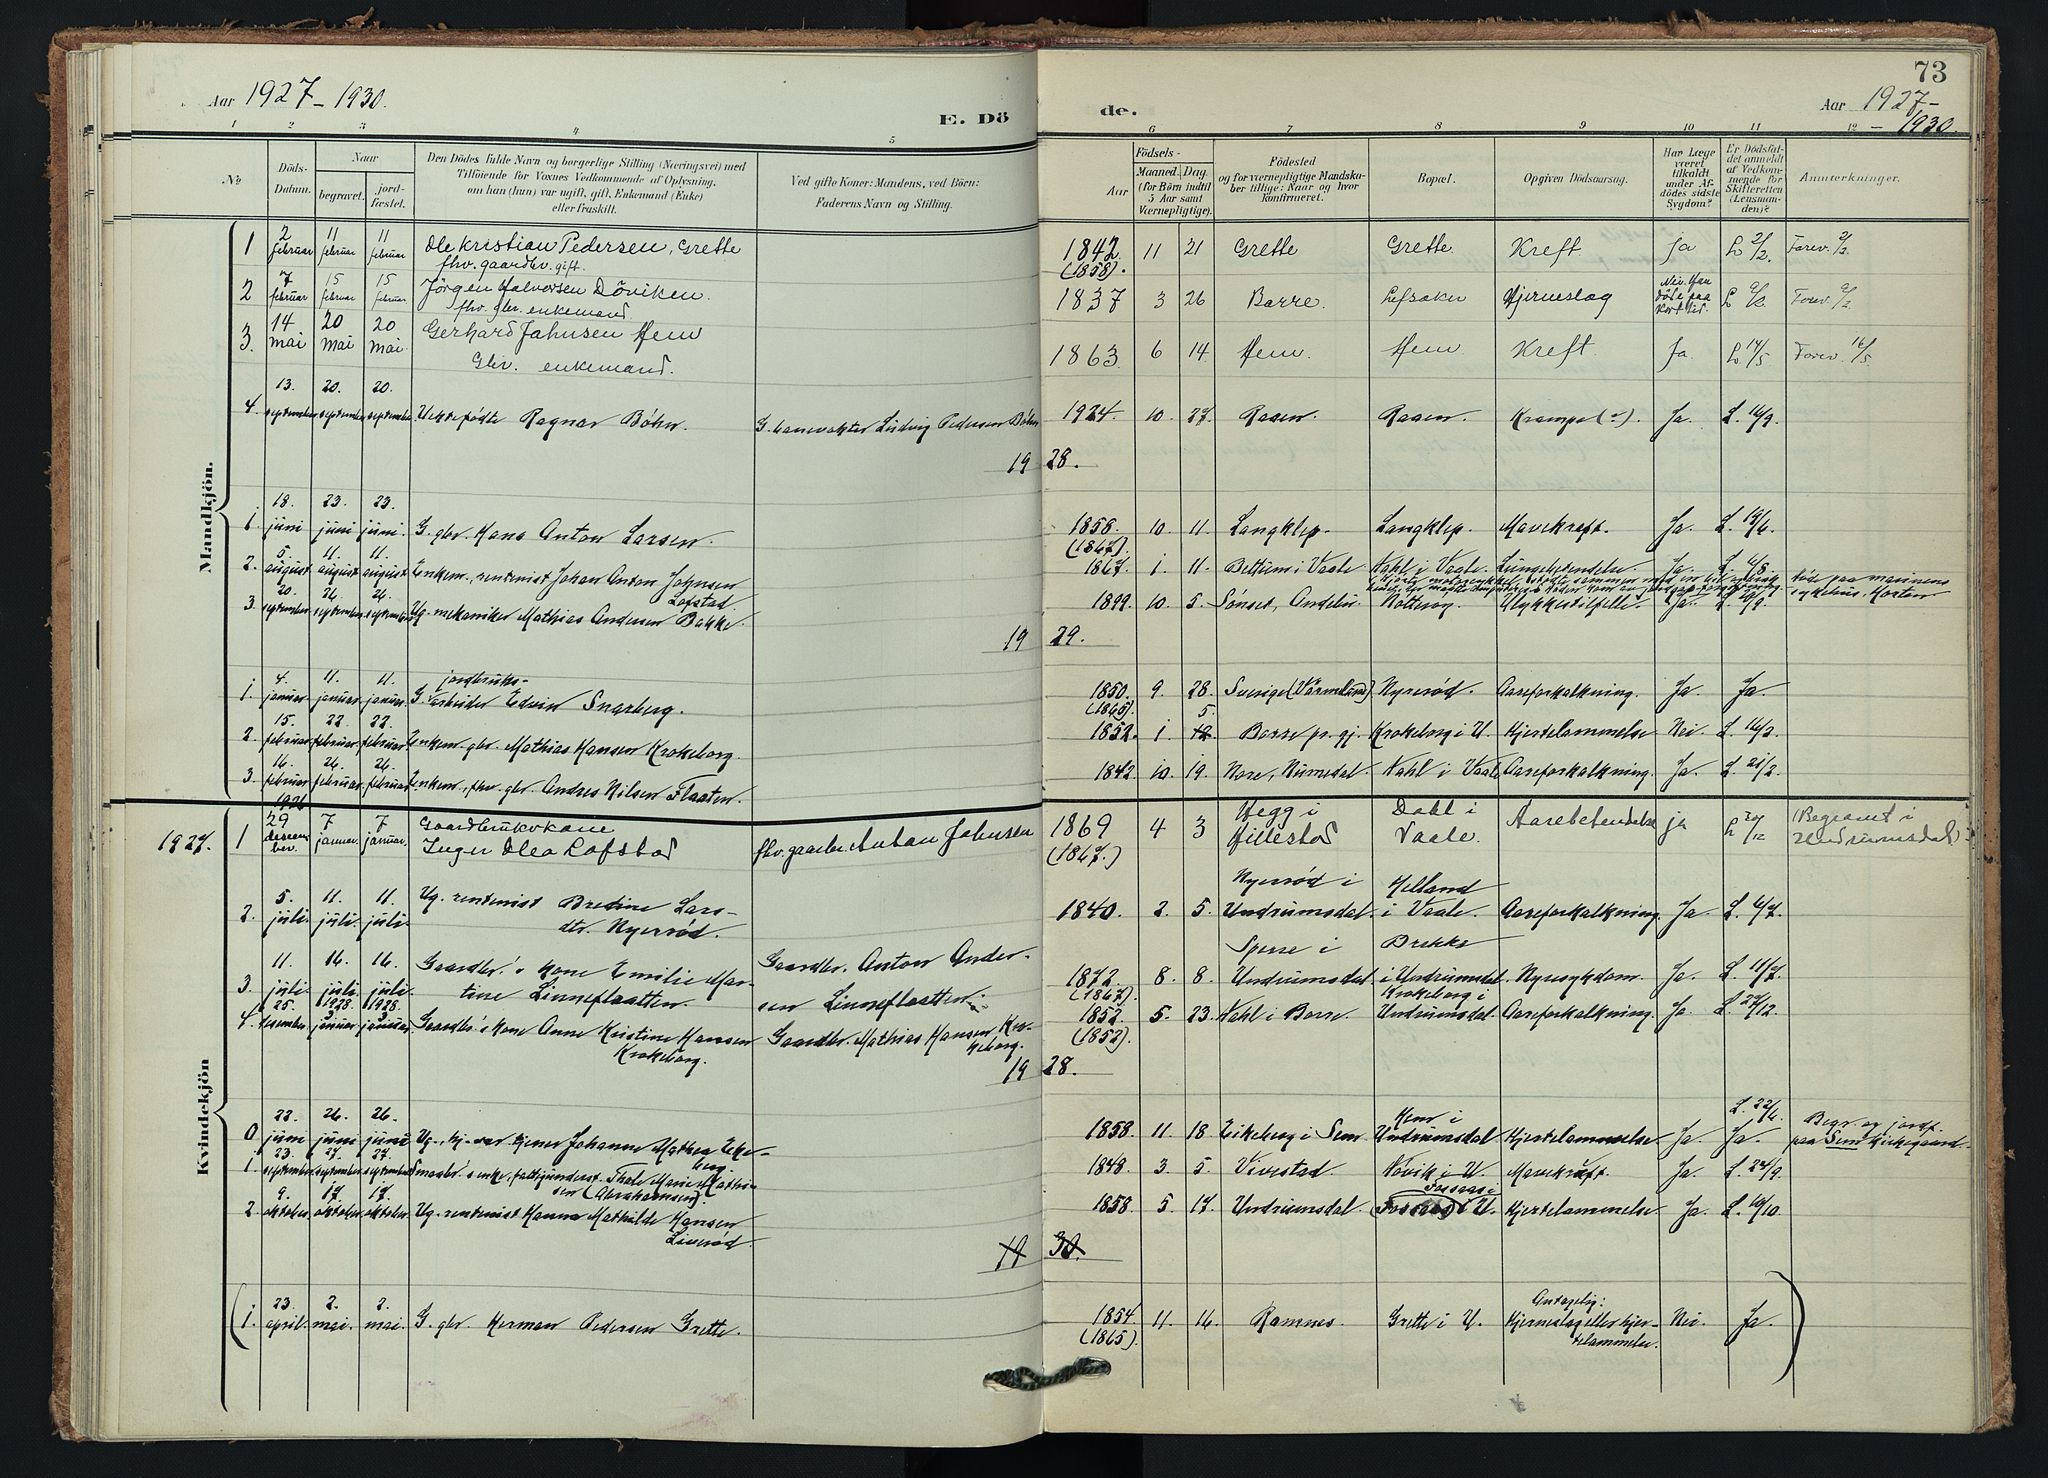 Aar 1927-1930.
E. Dö
de.
73
Aar 1927-
- 1930.
1 2 3 4 5 6 7 8 9 10 11 12
No
Döds-
Datum.
Naar
begravet.
jord-
fæstet.
Den Dödes fulde Navn og borgerlige Stilling (Næringsvei) med
Tilföiende for Voxnes Vedkommende af Oplysning,
om han (hun) var ugift, gift, Enkemand (Enke)
eller fraskilt.
Ved gifte Koner: Mandens, ved Börn:
Faderens Navn og Stilling.
Födsels-
Aar
Maaned. Dag.
(for Börn indtil
5 Aar samt
Værnepligtige).
Födested
og for værnepligtige Mandska-
ber tillige: Naar og hvor
konfirmeret.
Bopæl.
Opgiven Dödsaarsag.
Har Læge
været
tilkaldt
under Af-
dödes sidste
Sygdom?
Er Dödsfal-
det anmeldt
af Vedkom-
mende for
Skifteretten
(Lensman-
den)?
Anmerkninger.
Mandkjön.
1 2 februar 11 februar 11 februar Ole Kristian Pedersen, Grette 1842 11 21 Grette Grette Kreft ja L 2/2. Forev. 2/2.
fhv. gaardbr. gift. (1858).
2 7 februar 15 februar 15 februar Jörgen Halvorsen Döviken 1837 3 26 Borre Lefsaker Hjerneslag Nei. Han döde paa kort tid. L 9/2 Forev 9/2
fhv. gbr. enkemand.
3. 14 mai 20 mai 20 mai. Gerhard Jahnsen Hem 1863 6 14 Hem. Hem Kreft Ja L 14/5 Forev. 16/5
Gbr. enkemand.
4. 13. september 20. september 20. september Uektefødte Ragnar Bøhn. G. banevokter Ludvig Pedersen Bøhn 1924. 10. 27. Raaen. Raaen. Krampe(?). Ja. L. 14/9.
19 28.
1. 18. juni 23. juni 23. juni. G. gbr. Hans Anton Larsen. 1858. 10. 11. Langklep. Langklep. Mavekreft. Ja. L. 19/6.
(1867).
2. 5. august 11. august 11. august Enkem., rentenist Johan Anton Jahnsen Lofstad. 1867. 1. 11. Bettum i Vaale Vahl i Vaale. Lungebetendelse. Ja. L. 6/8.
3. 20. september 26. september 26. september Ug. mekaniker Mathias Andersen Bakke. 1899. 10. 5. Sønset, Andebu. Ulykkestilfelle. Ja. død paa marinens sykehus, Horten
19 29.
1. 4. januar 11. januar 11. januar G. jordbruks-arbeider Edvin Snarberg. 1850. 9. 28. Sverige (Värmeland) Nyrerød. Aareforkalkning. Ja. Ja.
(1865)
2. 15. februar 22. februar 22. februar Enkem. gbr. Mathias Hansen Krokeborg. 1852. 1. 5. Borre pr. gj. Krokeborg i U. Hjertelammelse Nei. L. 16/2.
3. 16. februar 26. februar 26. februar Enkem., fhv. gbr. Andres Nilsen Flaaten. 1842. 10. 19. Nore, Numedal. Vahl i Vaale Aareforkalkning. Ja. L. 21/2.
Kvindekjön
1927.
1 1926 29 desember. 7 januar. 7 januar. Gaardbrukskone Inger Olea Lofstad fhv. gaardbr. Anton Jahnsen 1869 4 3 Hegg i Hillestad Dahl i Vaale. Aarebetendelse ja L 30/12 (Begravet i Undrumsdal)
(1867.)
2. 5. juli. 11. juli. 11. juli. Ug. rentenist Bredine Lars-dtr. Nyerrød. 1840. 2. 5. Nyerrød i Undrumsdal Helland i Vaale. Aareforkalkning. Ja. L. 6/7.
3. 11. juli. 16. juli. 16. juli. Gaardbr.'s kone Emilie Mar-tine Linneflaatten. Gaardbr. Anton Ander-sen Linneflaatten. 1872. 8. 8. Sperre i Undrumsdal Brekke i Undrumsdal Nyresykdom. Ja. L. 11/7.
(1867).
4. 25. desember. 1928. 3. januar 1928. 3. januar Gaardbr.'s kone Anne Kristine Hansen Krokeborg. Gaardbr. Mathias Hansen Kro-keborg. 1852. 5. 23. Vahl i Borre. Krokeborg i Undrumsdal. Aareforkalkning. Ja L. 27/12.
(1852).
19 28.
0 22. juni 26. juni 26. juni Johanne Mathea Eke-berg. 1858. 11. 18 Eikeberg i Sem Hem i Undrumsdal Hjertelammelse. Ja L. 22/6. Ja. Begr. og jordf. paa Sem kirkegaard.
1. 23. september 27. september 27. september Smaabr.'s enke, Thale Marie Mathi-sen (Abrahamsen) 1848. 3. 5. Vivestad Vøvik i U. Mavekræft. Ja. L. 24/9.
2. 9. oktober. 17. oktober. 17. oktober. Ug. rentenist Hanna Mathilde Hansen Liverød. 1858. 5 17. Undrumsdal. Fossaas i U. Hjertelammelse Ja. L. 10/10.
19 30.
(1. 23. april. 2. mai. 2. mai. G. gbr. Herman Pedersen Grette. 1854. 11. 16. Ramnes. Grette i U. Antagelig: Hjerneslag eller hjer-telammelse. Nei. Ja.)
(1865).